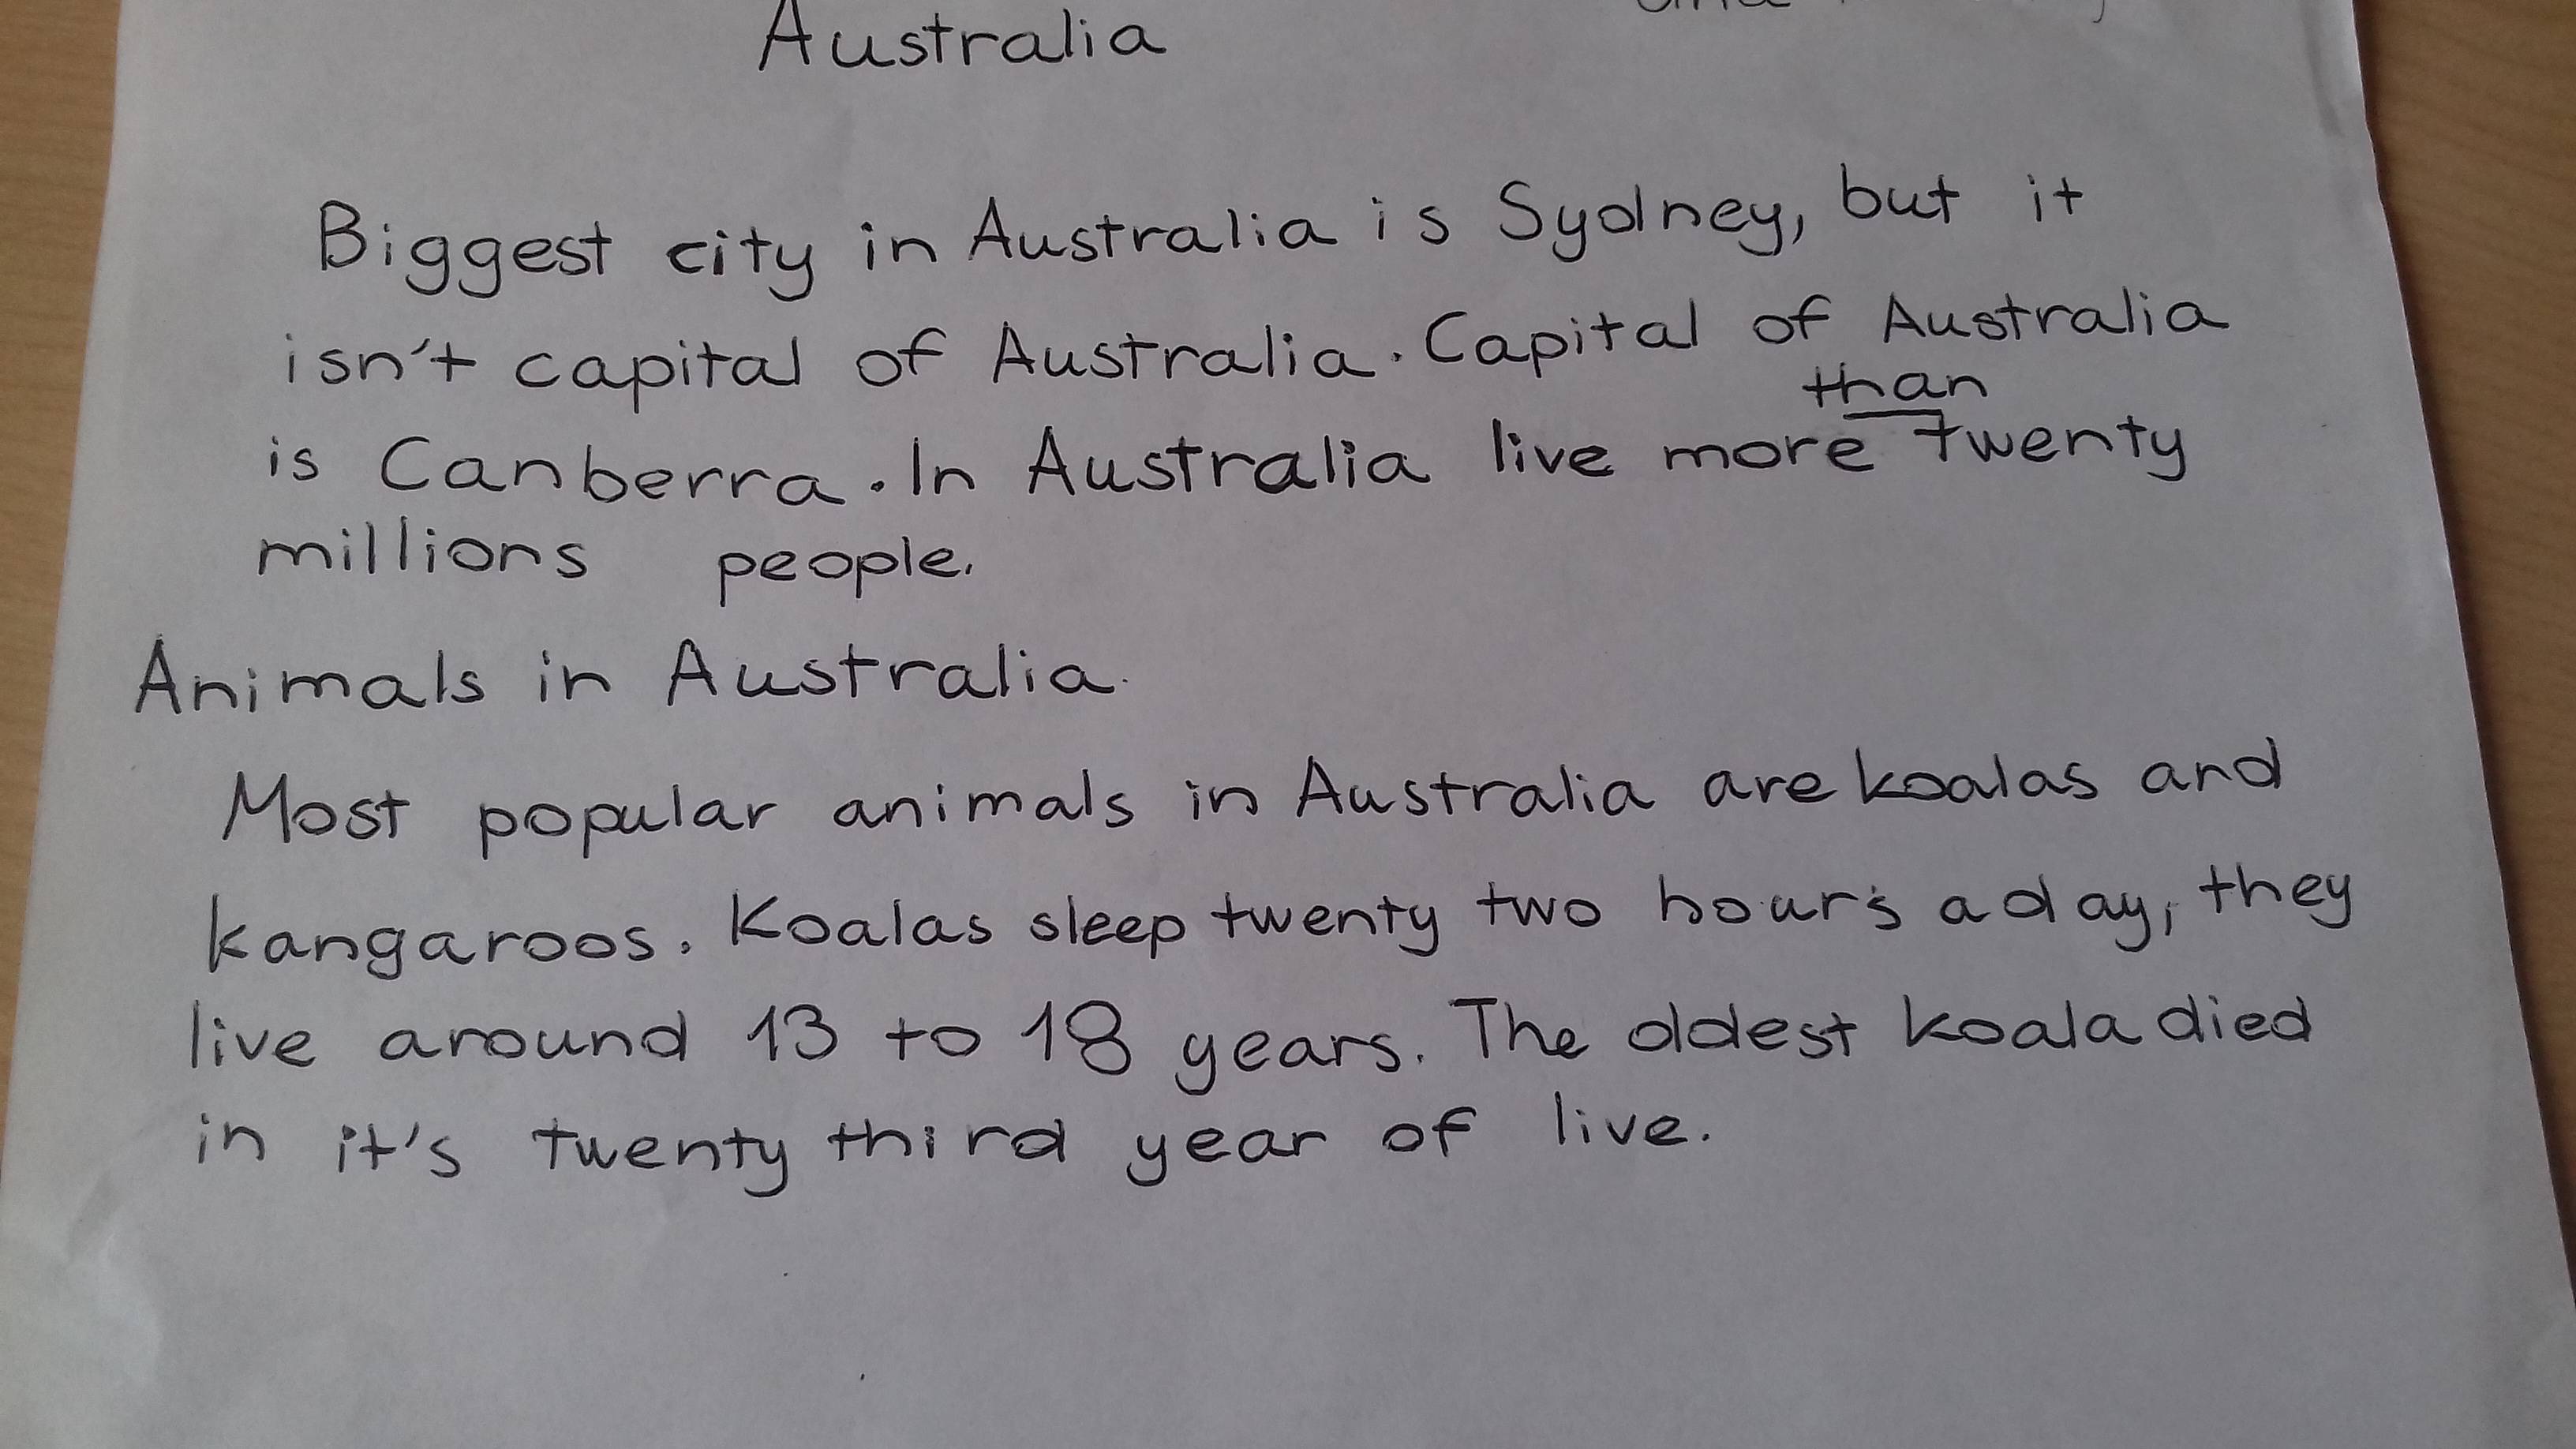 Australia
Biggest city in Australia is Sydney, but it
isn't capital of Australia. Capital of Australia
than
is Canberra. In Australia live more twenty
millions people.
Animals in Australia.
Most popular animals in Australia are koalas and
kangaroos. Koalas sleep twenty two hours a day, they
live around 13 to 18 years. The oldest koala died
in it's twenty third year of live.